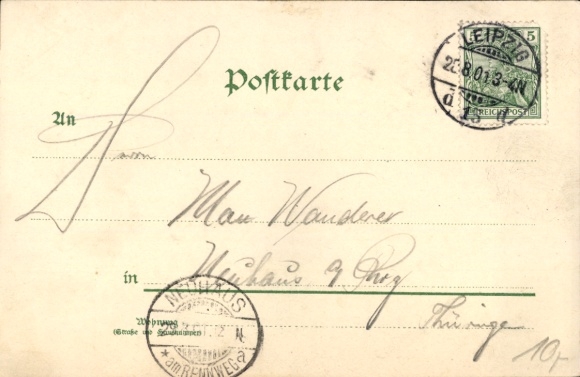 Postkarte
5
REICHSPOST
LEIPZIG
An
Herrn
Max Wanderer
in Neuhaus a/Rwg
Thüringen
NEUHAUS
* am RENNWEG a
Wohnung
(Straße und Hausnummer)
10,-